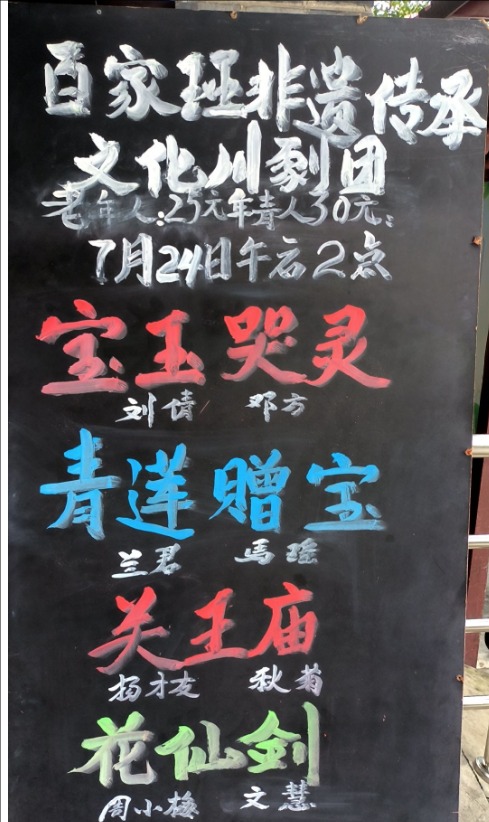 百家班非遗传承
文化川剧团
老年人:25元年青人30元:
7月24日午后2点
宝玉哭灵
刘倩 邓方
青莲赠宝
兰君 馬瑶
关王庙
杨才友 秋菊
花仙剑
周小梅 文慧